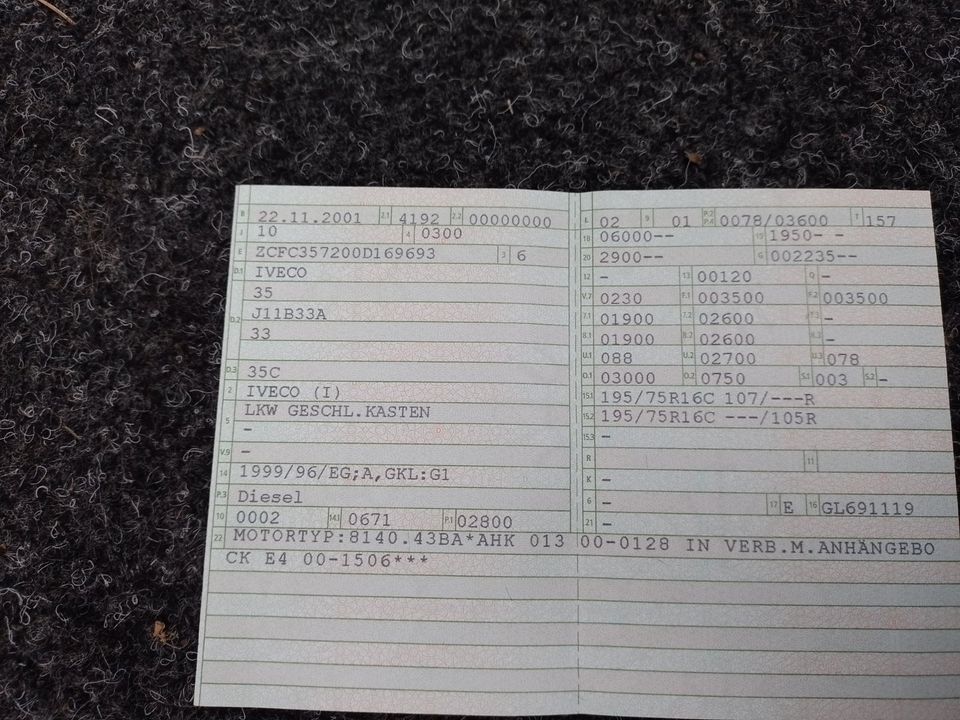 B 22.11.2001 2.1 4192 2.2 00000000
J 10 4 0300
E ZCFC357200D169693 3 6
D.1 IVECO
35
D.2 J11B33A
33
D.3 35C
2 IVECO (I)
5 LKW GESCHL.KASTEN
-
V.9 -
14 1999/96/EG;A,GKL:G1
P.3 Diesel
10 0002 14.1 0671 P.1 02800
L 02 9 01 P.2 P.4 0078/03600 T 157
18 06000-- 19 1950- -
20 2900-- G 002235--
12 - 13 00120 Q -
V.7 0230 F.1 003500 F.2 003500
7.1 01900 7.2 02600 7.3 -
8.1 01900 8.2 02600 8.3 -
U.1 088 U.2 02700 U.3 078
O.1 03000 O.2 0750 S.1 003 S.2 -
15.1 195/75R16C 107/---R
15.2 195/75R16C ---/105R
15.3 -
R 11
K -
6 - 17 E 16 GL691119
21 -
22 MOTORTYP:8140.43BA*AHK 013 00-0128 IN VERB.M.ANHÄNGEBO
CK E4 00-1506***